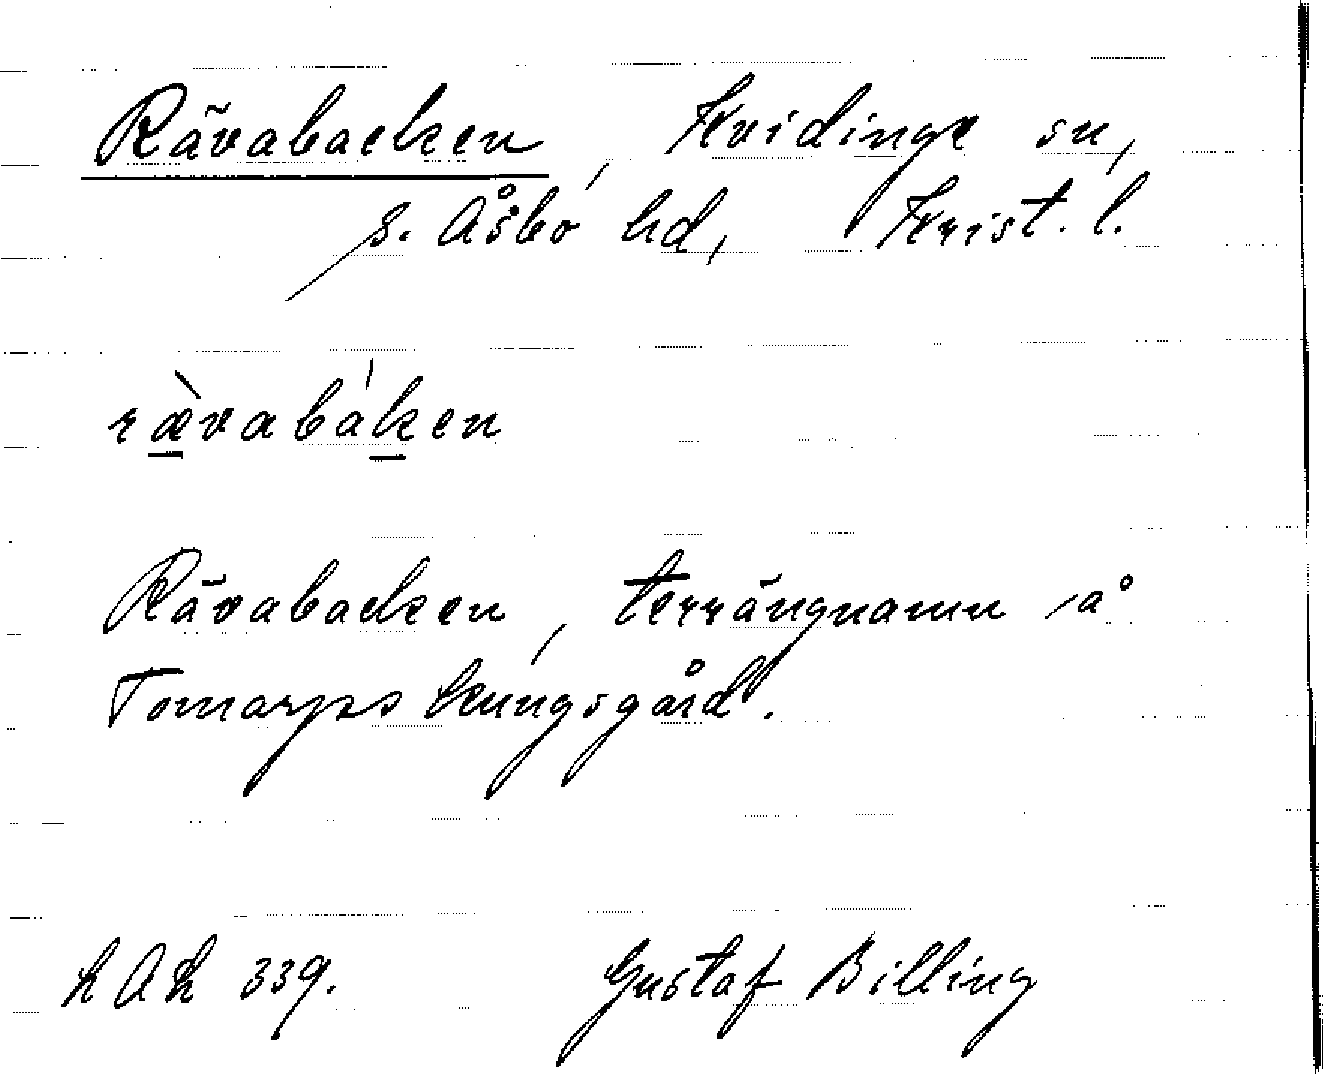 Rävabacken, Kvidinge sn,
S. Åsbo hd, Krist. l.
rævabaken
Rävabacken, terrängnamn å
Tomarps kungsgård.
LAL 339. Gustaf Billing